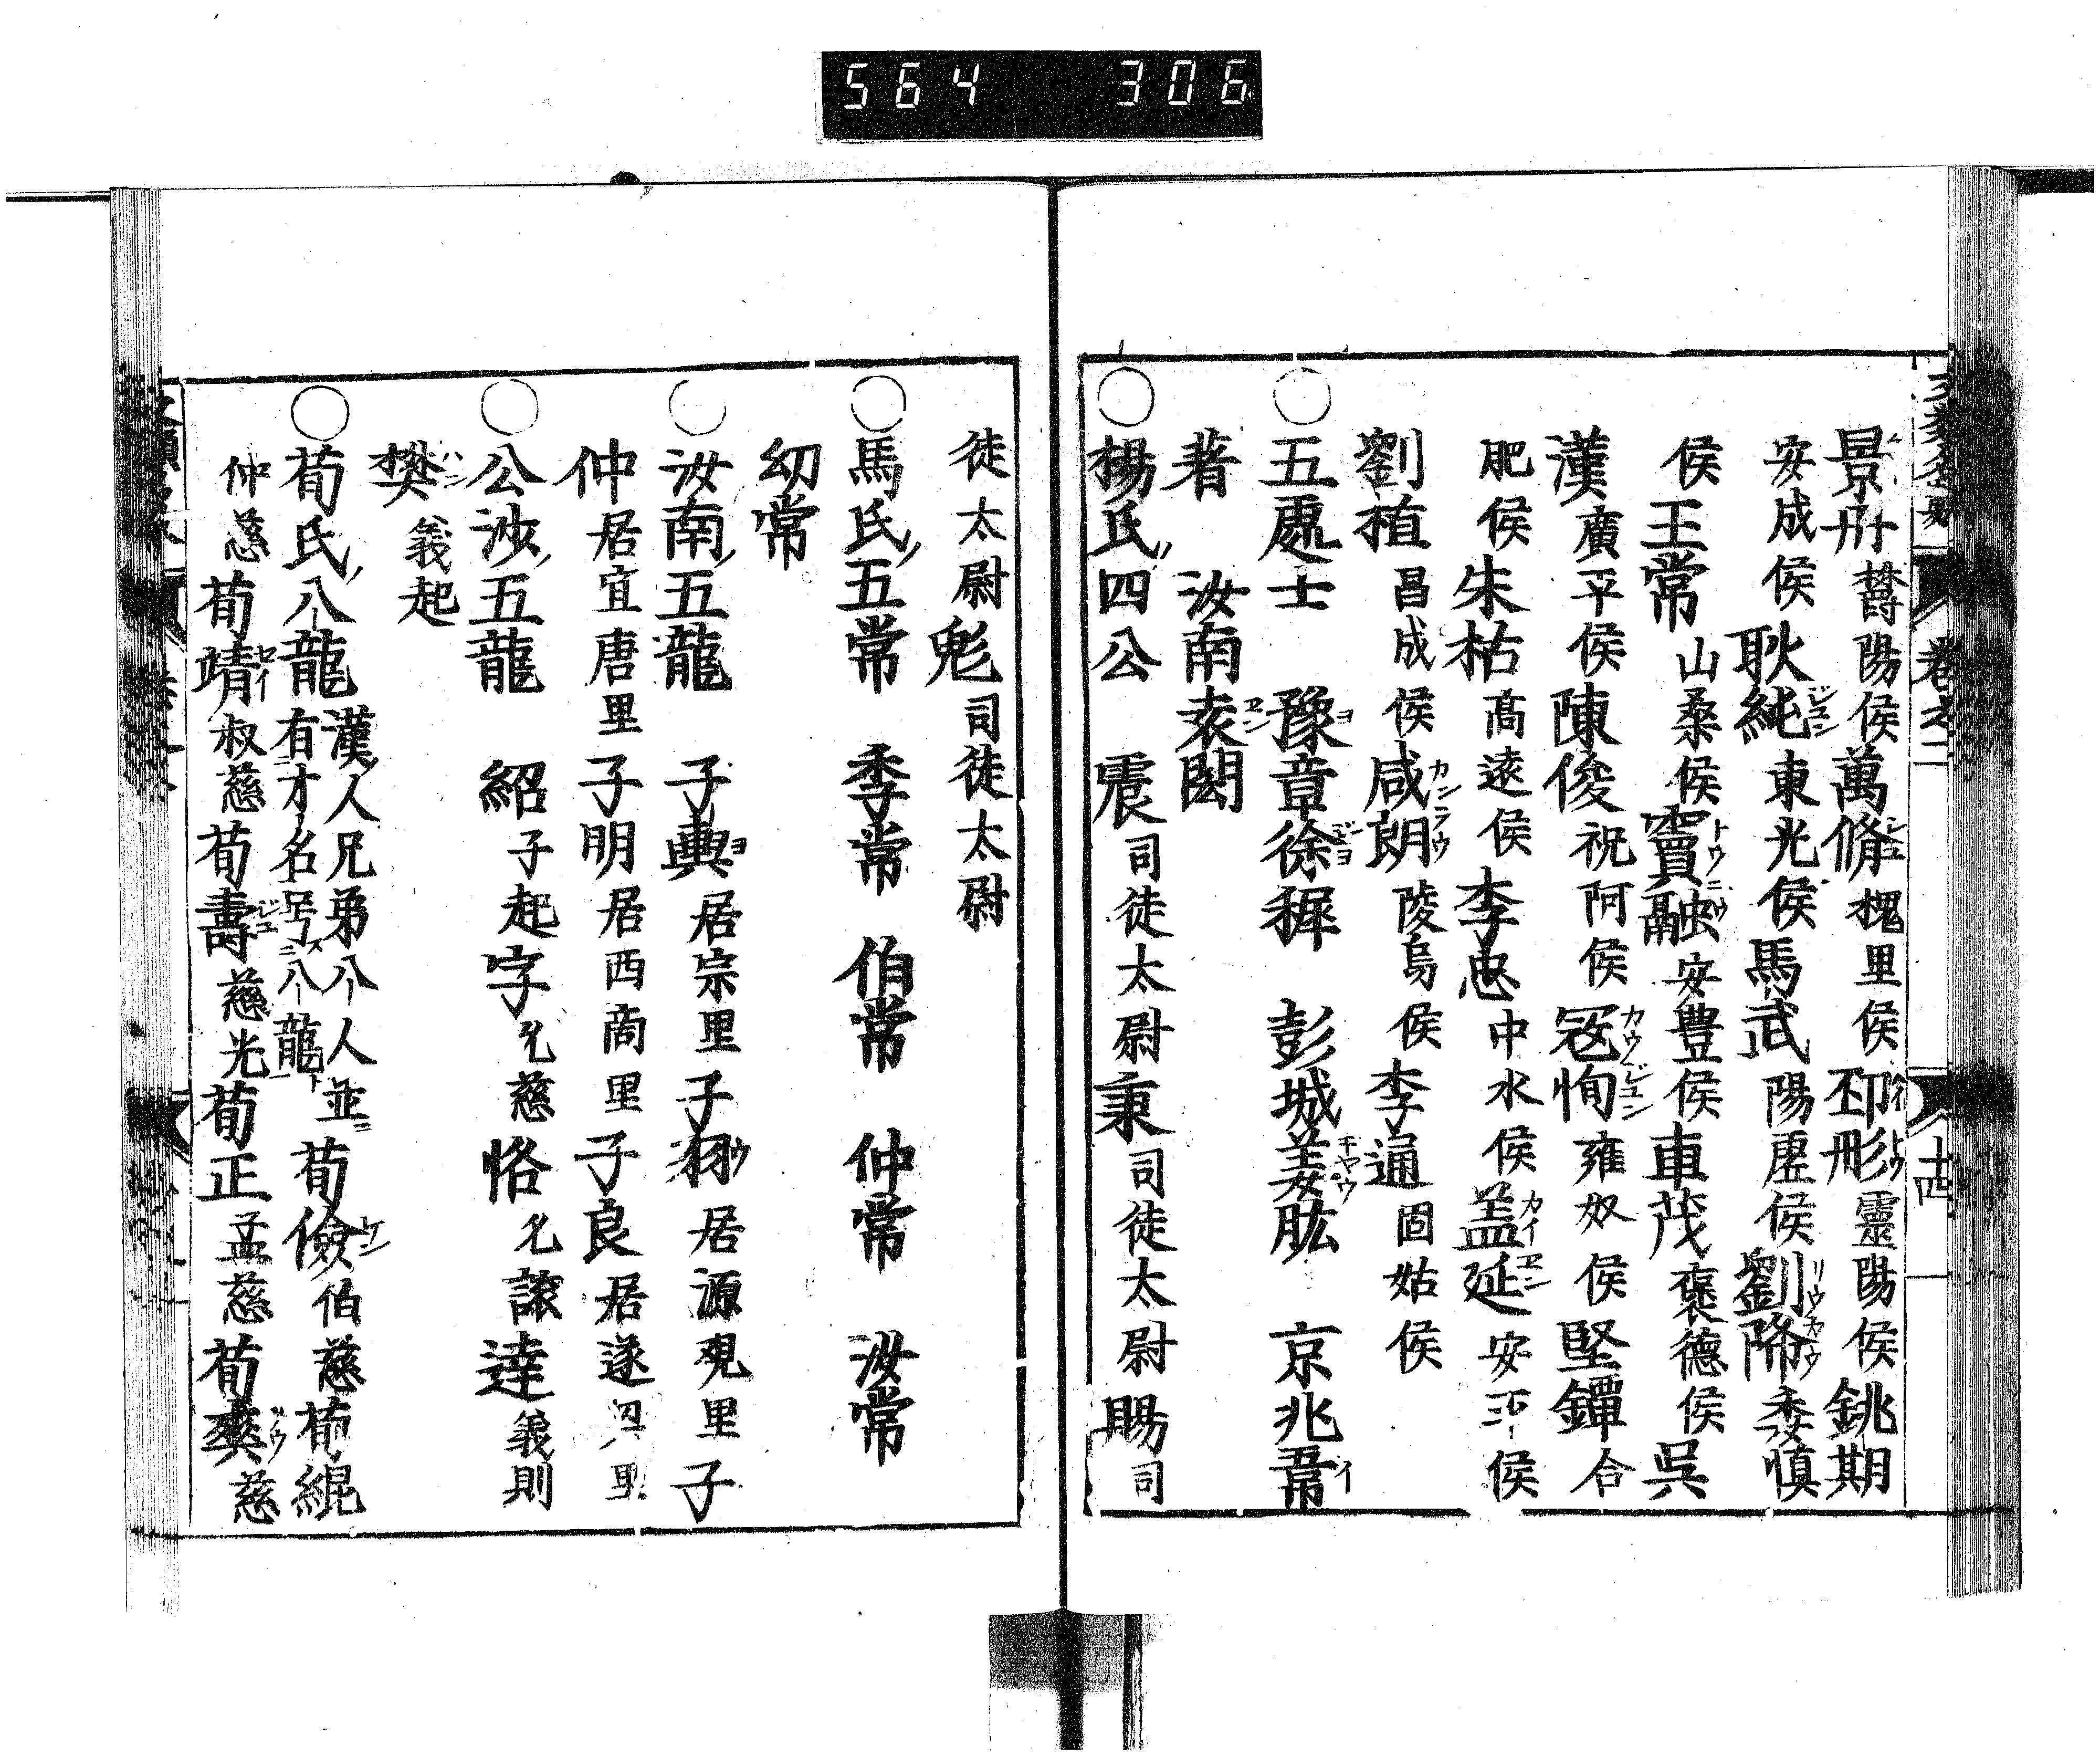 564 306
景丹櫟陽侯萬脩槐里侯邳彤靈陽侯銚期
安成侯耿純東光侯馬武陽虛侯劉隆委慎
侯王常山桑侯竇融安豊侯車茂褒德侯呉
漢廣平侯陳俊祝阿侯冦恂雍奴侯堅鐔合
肥侯朱祜髙遠侯李忠中水侯盖延安平侯
劉植昌成侯咸朗陵烏侯李通固姑侯
○五處士 豫章徐穉 彭城姜肱 京兆韋
著 汝南袁閎
○楊氏四公 震司徒太尉秉司徒太尉賜司
徒太尉彪司徒太尉
○馬氏五常 季常 伯常 仲常 汝常
幼常
○汝南五龍 子輿居宗里子羽居源覌里子
仲居宜唐里子明居西商里子良居遂里
○公沙五龍 紹子起字允慈恪允讓逹義則
樊義起
○荀氏八龍漢人兄弟八人並有才名号八龍荀儉伯慈荀緄
仲慈荀靖叔慈荀壽慈光荀正孟慈荀爽慈
卷之二
十四